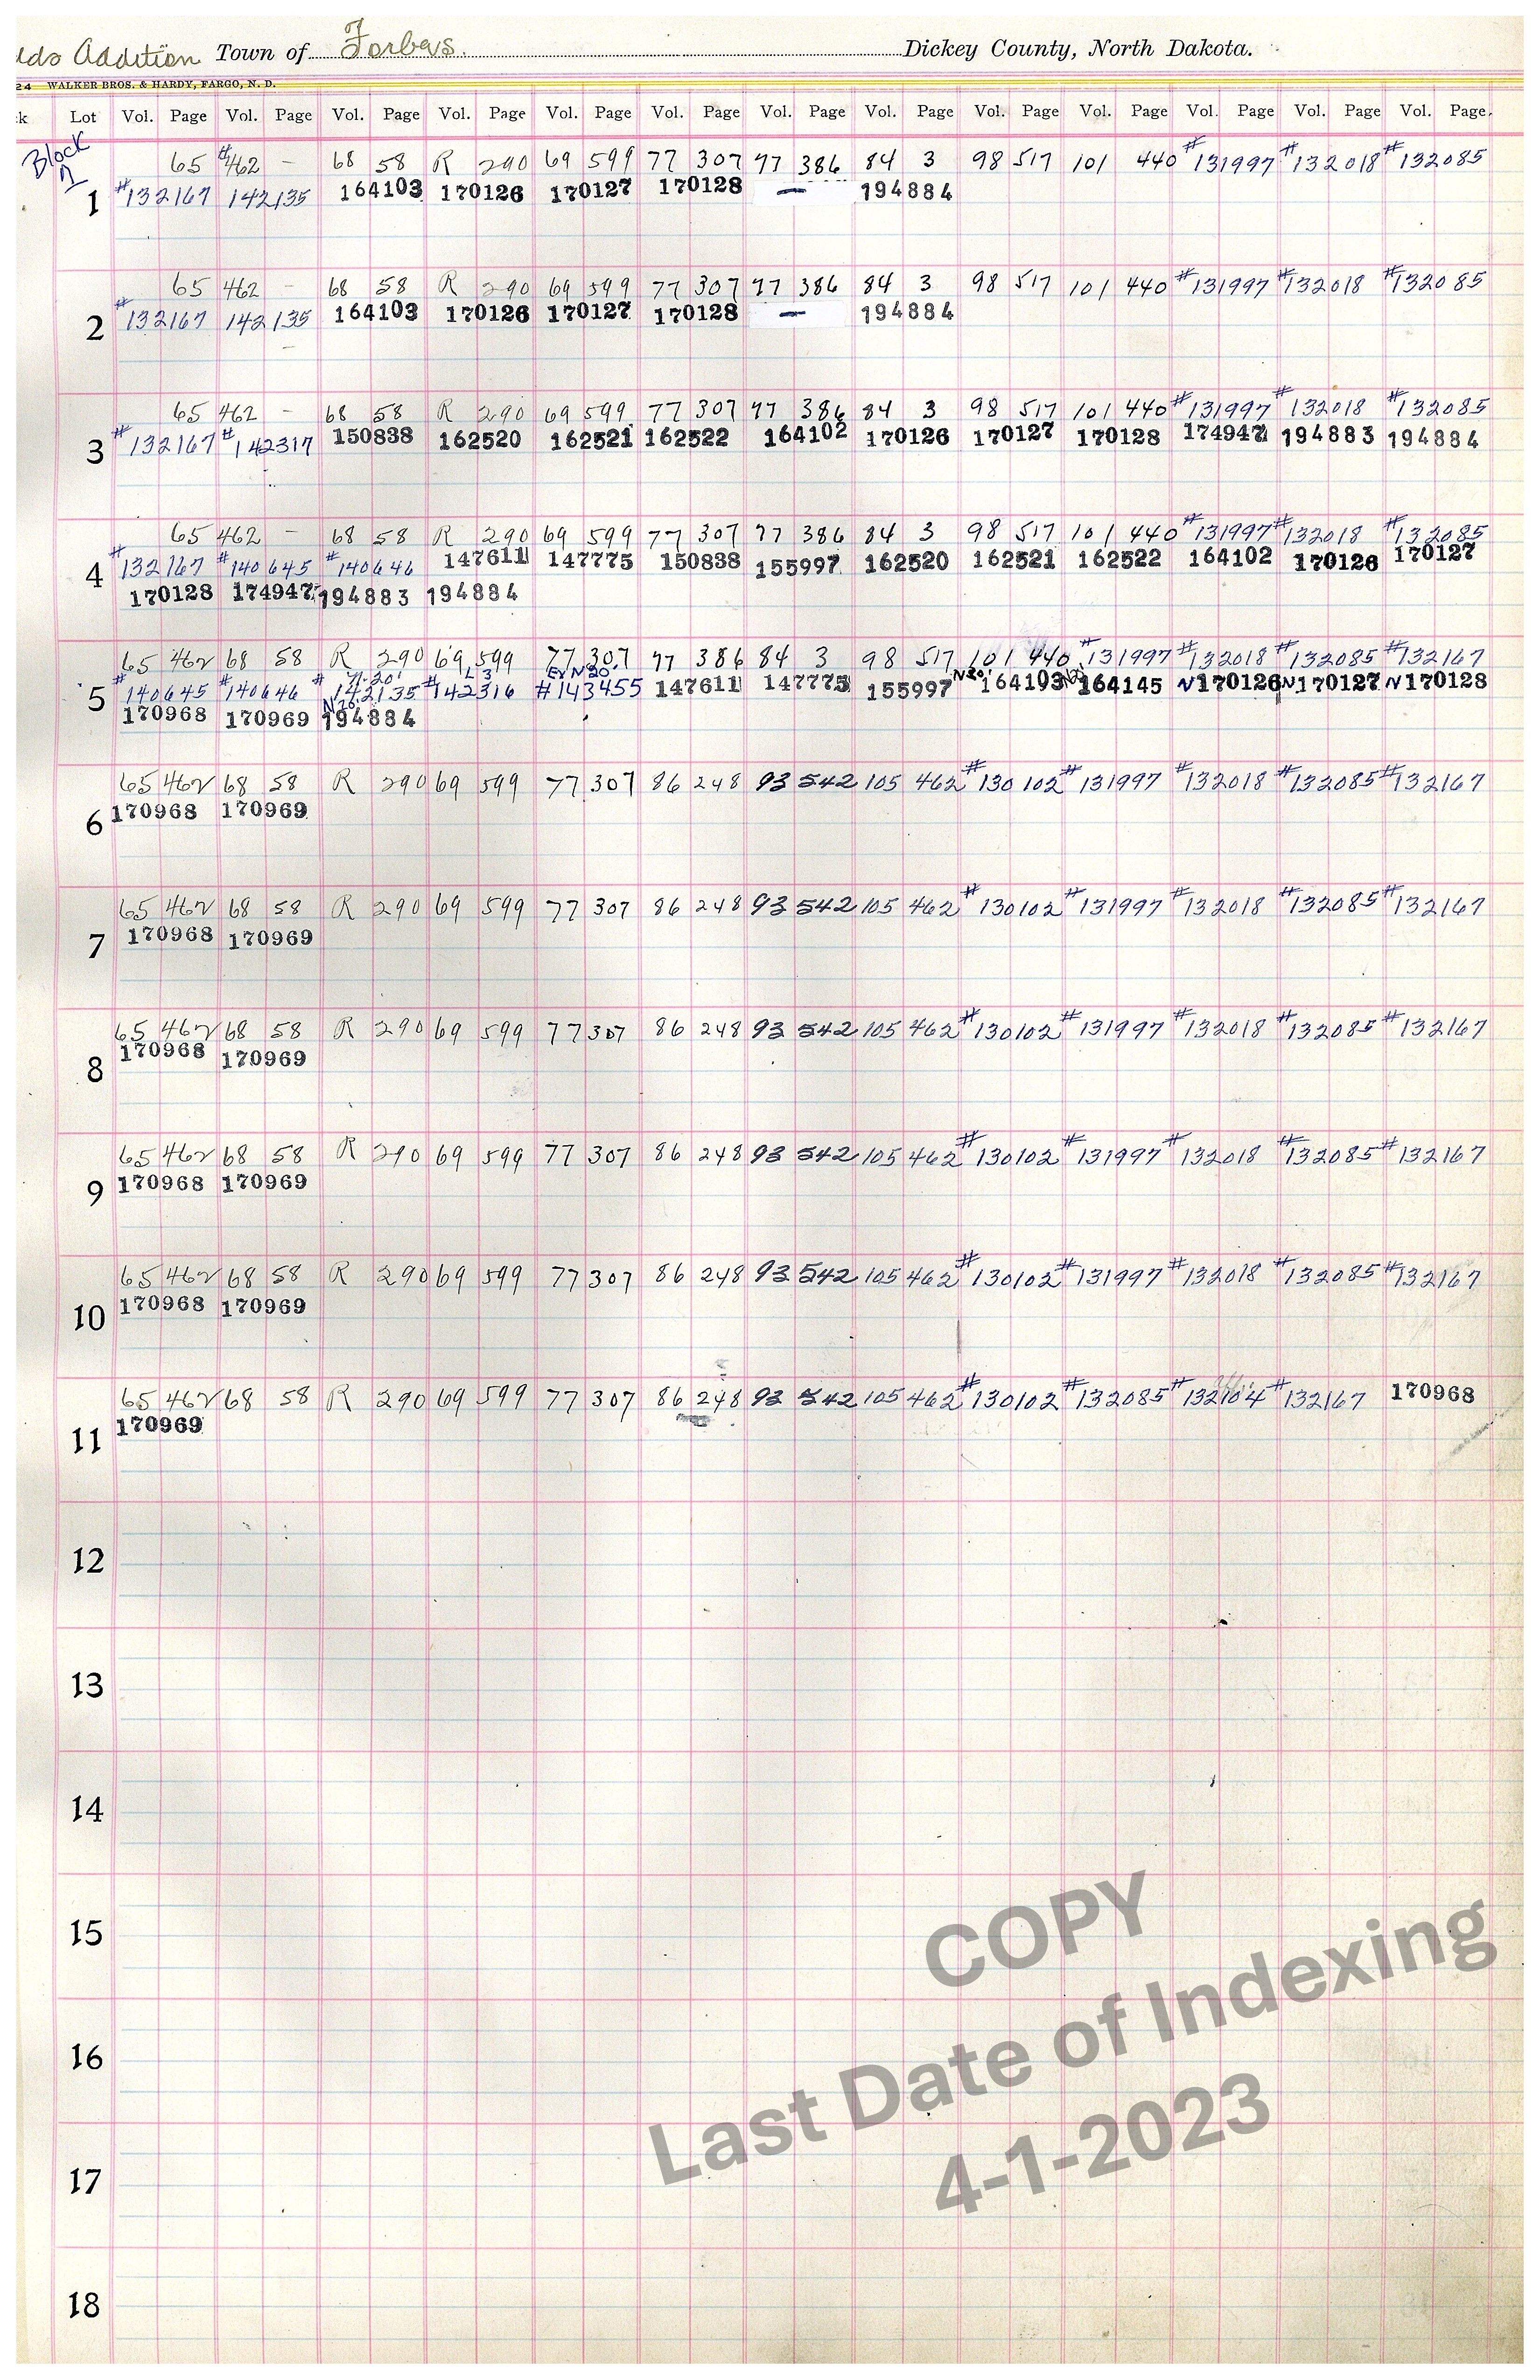 Addition Town of Forbes Dickey County, North Dakota.
24 WALKER BROS. & HARDY, FARGO, N. D.
Lot Vol. Page Vol. Page Vol. Page Vol. Page Vol. Page Vol. Page Vol. Page Vol. Page Vol. Page Vol. Page Vol. Page Vol. Page Vol. Page
Block
1
65 #462 - 68 58 R 290 69 599 77 307 77 386 84 3 98 517 101 440 #131997 #132018 #132085
1 #132167 142135 164103 170126 170127 170128 — 194884
65 462 - 68 58 R 290 69 599 77 307 77 386 84 3 98 517 101 440 #131997 #132018 #132085
2 #132167 142135 164103 170126 170127 170128 — 194884
65 462 - 68 58 R 290 69 599 77 307 77 386 84 3 98 517 101 440 #131997 #132018 #132085
3 #132167 #142317 150838 162520 162521 162522 164102 170126 170127 170128 174947 194883 194884
65 462 - 68 58 R 290 69 599 77 307 77 386 84 3 98 517 101 440 #131997 #132018 #132085
4 #132167 #140645 #140646 147611 147775 150838 155997 162520 162521 162522 164102 170126 170127
170128 174947 194883 194884
65 462 68 58 R 290 69 599 77 307 77 386 84 3 98 517 101 440 #131997 #132018 #132085 #132167
N-20' L 3 Ex N 20'
5 #140645 #140646 #142135 #142316 #143455 147611 147775 155997 N20' 164103 N20' 164145 N170126 N170127 N170128
170968 170969 N20' 194884
65 462 68 58 R 290 69 599 77 307 86 248 93 542 105 462 #130102 #131997 #132018 #132085 #132167
6 170968 170969
65 462 68 58 R 290 69 599 77 307 86 248 93 542 105 462 #130102 #131997 #132018 #132085 #132167
7 170968 170969
65 462 68 58 R 290 69 599 77 307 86 248 93 542 105 462 #130102 #131997 #132018 #132085 #132167
8 170968 170969
65 462 68 58 R 290 69 599 77 307 86 248 93 542 105 462 #130102 #131997 #132018 #132085 #132167
9 170968 170969
65 462 68 58 R 290 69 599 77 307 86 248 93 542 105 462 #130102 #131997 #132018 #132085 #132167
10 170968 170969
65 462 68 58 R 290 69 599 77 307 86 248 93 542 105 462 #130102 #132085 #132104 #132167 170968
11 170969
12
13
14
15
16
17
18
COPY
Last Date of Indexing
4-1-2023